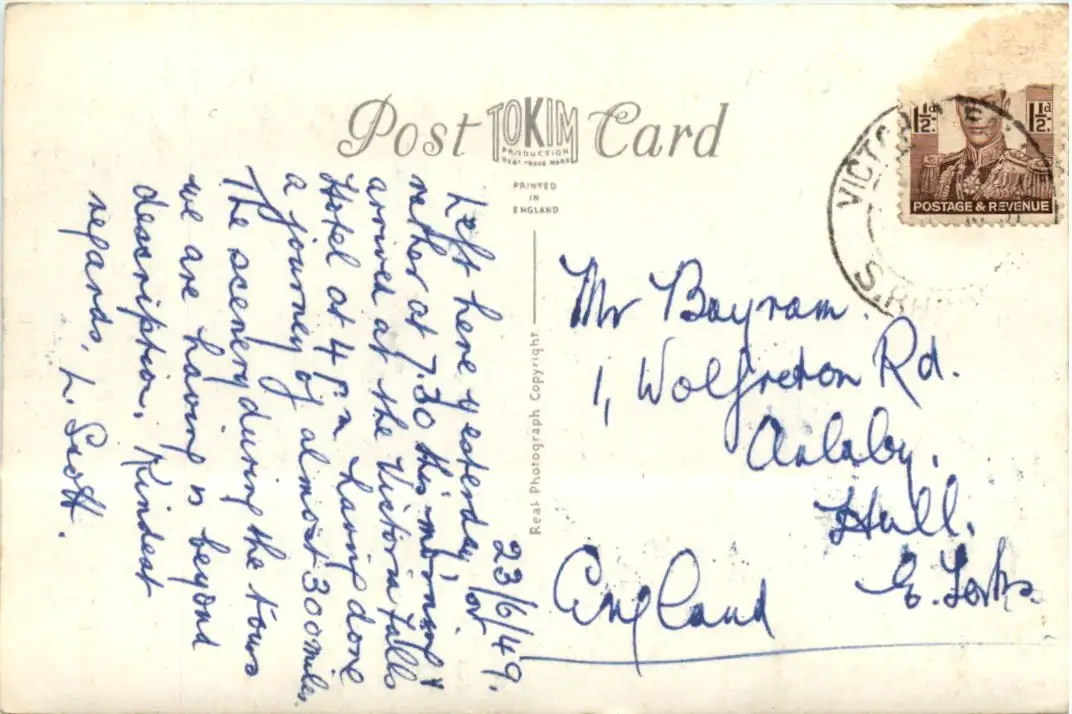 Post TOKIM Card
PRODUCTION
REAL TRADE MARK
PRINTED
IN
ENGLAND
Real Photograph Copyright
1½d. 1½d.
POSTAGE & REVENUE
VICTORIA
S.RH
23/6/49.
Left here yesterday, or
rather at 7.30 this morning &
arrived at the Victoria Falls
Hotel at 4 p.m having done
a journey of almost 300 miles.
The scenery during the tours
we are having is beyond
description. Kindest
regards. L. Scott.
Mr Boyram.
1, Wolfreton Rd.
Anlaby.
Hull.
E. Yorks.
England